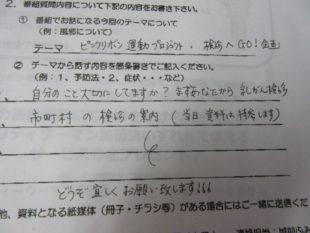 2. 番組質問内容について下記の内容をお書き下さい。
① 番組でお話になる今回のテーマについて
(例：風邪について)
テーマ ピンクリボン運動プロジェクト・検診へGO!企画
② テーマから話す内容を箇条書きでご記入ください。
(例：1、予防法・2、症状・・・など)
自分のこと大切にしてますか？まずあなたから乳がん検診
市町村の検診の案内（当日資料は持参します）
どうぞ宜しくお願い致します!!!
他、資料となる紙媒体（冊子・チラシ等）がある場合にはご一緒に送信くだ